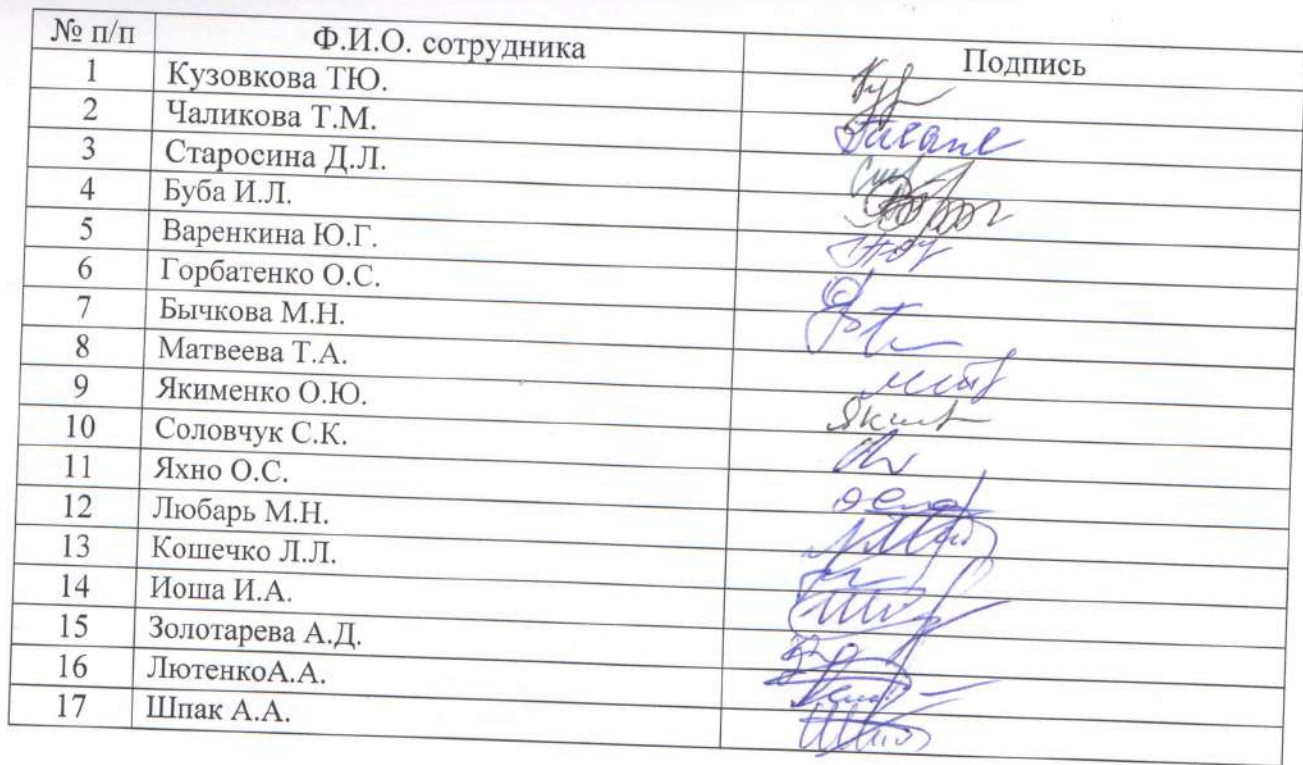 № п/п Ф.И.О. сотрудника Подпись
1 Кузовкова ТЮ.
2 Чаликова Т.М.
3 Старосина Д.Л.
4 Буба И.Л.
5 Варенкина Ю.Г.
6 Горбатенко О.С.
7 Бычкова М.Н.
8 Матвеева Т.А.
9 Якименко О.Ю.
10 Соловчук С.К.
11 Яхно О.С.
12 Любарь М.Н.
13 Кошечко Л.Л.
14 Иоша И.А.
15 Золотарева А.Д.
16 ЛютенкоА.А.
17 Шпак А.А.